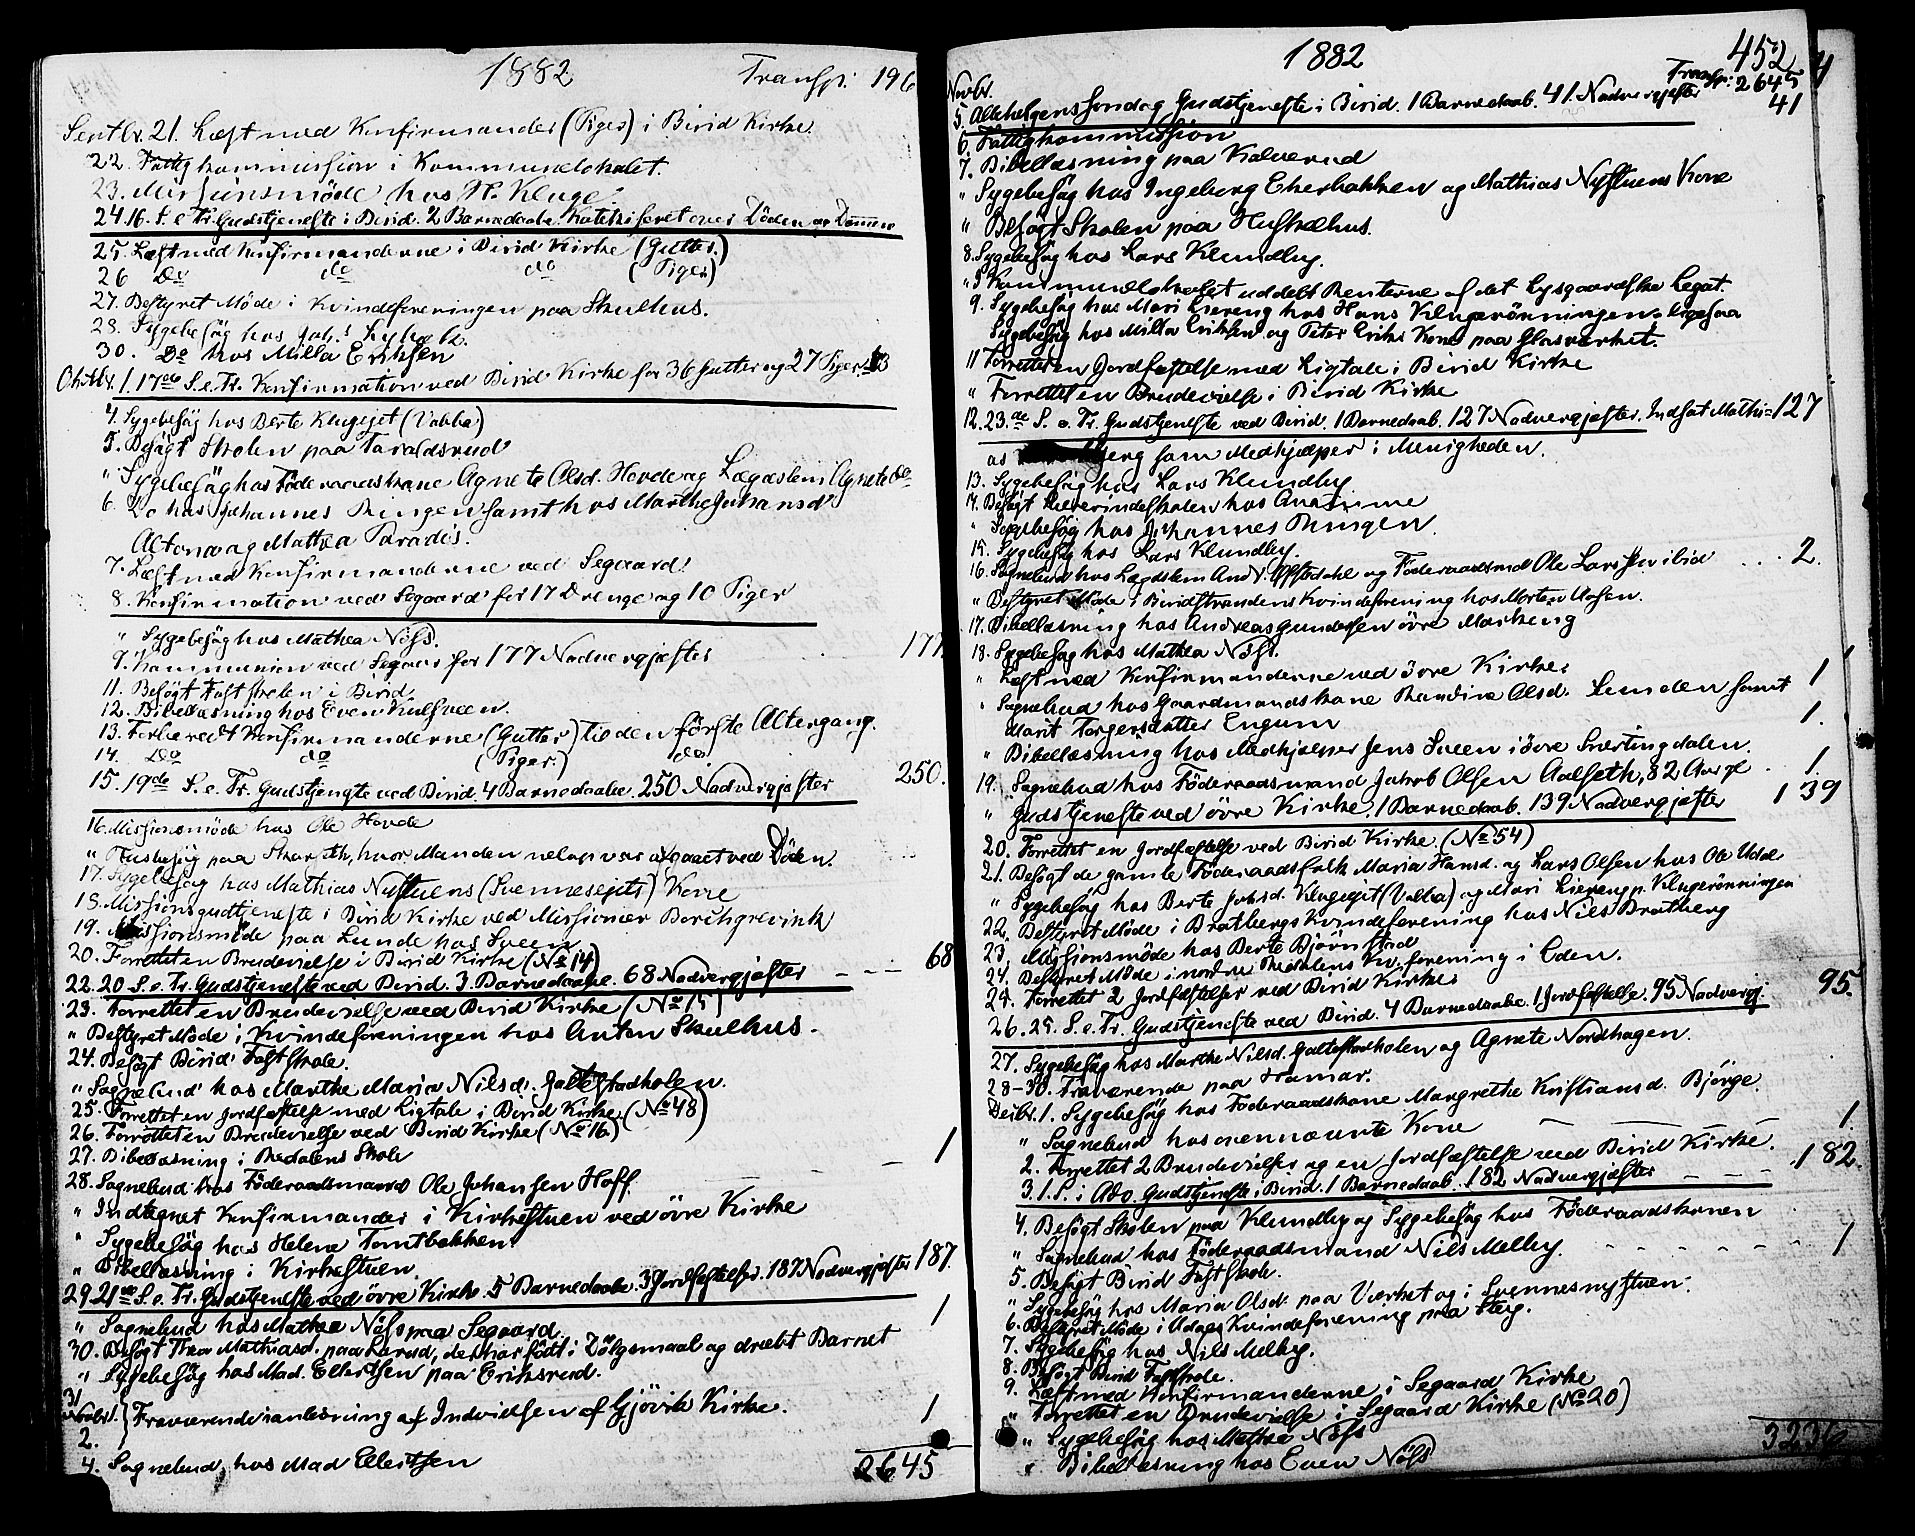 1882 Transp: 196
Septbr. 21. Læst med Konfirmander (Piger) i Birid Kirke.
22. Fattigkommission i Kommunelokalet.
23. Missionsmöde hos H. Kluge
24. 16. S. e. Tr. Gudstjeneste i Birid. 2 Barnedaabe. Katekiseret over Döden og Dommen
25. Læst med Konfirmanderne i Birid Kirke (Gutter.)
26 Do do do (Piger)
27. Bestyret Möde i Kvindeforeningen paa Skulhus.
28. Sygebesög hos Joh.s
30. Do hos Milla Eriksen
Oktbr. 1. 17de S. e. Tr. Konfirmation ved Birid Kirke for 36 Gutter og 27 Piger. 63
4. Sygebesög hos Berte Klugejet (Vabba)
5. Besögt Skolen paa Taraldsrud
" Sygebesög hos Föderaadskone Agnete Olsd. Hovde og Lægdslem Agnete
6. Do hos Johannes Ringen samt hos Marthe Johansd
Altona og Mathea Paradis.
7. Læst med Konfirmanderne ved Segaard.
8. Konfirmation ved Segaard for 17 Drenge og 10 Piger
" Sygebesög hos Mathea Nöss.
9. Kommunion ved Segaar for 177 Nadvergjester 177.
11. Besögt Fastskolen i Birid.
12. Bibellæsning hos Even Kulsveen.
13. Forberedt Konfirmanderne (Gutter) til den förste Altergang.
14. Do do (Piger.) do.
15. 19de S. e. Tr. Gudstjeneste ved Birid. 4 Barnedaabe. 250 Nadvergjester 250.
16. Missionsmöde hos Ole Hovde
" Husbesög paa Skarseth, hvor Manden nelop var afgaaet ved Döden.
17. Sygebesög hos Mathias Nystuens (Svennesejets) Kone
18. Missionsgudtjeneste i Birid Kirke ved Missionær Borchgrevink
19. Missionsmöde paa Lunde hos Sveen
20. Forrettet en Brudevielse i Birid Kirke (No 14)
22. 20 S. e. Tr. Gudstjeneste ved Birid. 3. Barnedaabe. 68 Nadvergjester 68
23. Forrettet en Brudevielse ved Birid Kirke (No 15)
" Bestyret Möde i Kvindeforeningen hos Anton Skulhus.
24. Besögt Birid Fastskole.
" Sognebud hos Marthe Maria Nilsd. Gattestadholen.
25. Forrettet en Jordfæstelse med Ligtale i Birid Kirke (No 48)
26. Forrettet en Brudevielse ved Birid Kirke (No 16)
27. Bibellæsning i Redalens Skole
28. Sognebud hos Föderaadsmand Ole Johansen Hoff. 1
" Indtegnet Konfirmander i Kirkestuen ved övre Kirke
" Sygebesög hos Helene Tomtbakken
" Bibellæsning i Kirkestuen.
29. 21de S. e. Tr. Gudstjeneste ved övre Kirke. 5 Barnedaabe. 3 Jordfæstelser. 187. Nadvergjester 187.
" Sognebud hos Mathea Nöss paa Segaard. 1
30. Besögt Thea Mathiasd. paa Lerud, der har födt i Dölgsmaal og dræbt Barnet
" Sygebesög hos Mad. Ellertsen paa Eriksrud.
31 Novbr. 2. } Fraværende i anledning af Indvielsen af Gjövik Kirke.
4. Sognebud hos Mad Ellertsen 1
2645
1882 452
Transp: 2645
Novbr.
5. Allehelgens Söndag Gudstjeneste i Birid. 1 Barnedaab. 41. Nadvergjester 41
6. Fattigkommission
7. Bibellæsning paa Kalverud
" Sygebesög hos Ingeborg Ekerbakken og Mathias Nystuens Kone
" Besögt Skolen paa Huskelhus.
8. Sygebesög hos Lars Klundby.
" I Kommunelokalet uddelt Renterne af det Lysgaardske Legat.
9. Sygebesög hos Mari Liereng hos Hans Klugerönningen ligesaa
Sygebesög hos Milla Eriksen og Peter Eriks Kone paa Glasværket.
11 Forrettet en Jordfæstelse med Ligtale i Birid Kirke
" Forrettet en Brudevielse i Birid Kirke
12. 23de S. e. Tr. Gudstjeneste ved Birid. 1 Barnedaab. 127 Nadvergjester. Indsat Mathi= 127
as berg som Medhjælper i Menigheden.
13. Sygebesög hos Lars Klundby
14. Besögt Lærerindeskolen hos
" Sygebesög hos Johannes Ringen.
15. Sygebesög hos Lars Klundby.
16. Sognebud hos Lægdslem And. og Föderaadsmd Ole Larssen ibid 2.
" Bestyret Möde i Biridstrandens Kvindeforening hos Morten
17. Bibellæsning hos Andreas Gundersen övre Markeng
18. Sygebesög hos Mathea Nöss.
" Læst med Konfirmanderne ved övre Kirke
" Sognebud hos Gaardmandskone Randine Olsd. Linden samt 1
Marit Torgersdatter Engum 1.
" Bibellæsning hos Medhjælper Jens Sveen i övre Snertingdalen.
19. Sognebud hos Föderaadsmand Jakob Olsen Aalseth, 82 Aar gl 1
" Gudstjeneste ved övre Kirke. 1 Barnedaab. 139 Nadvergjester 139
20. Forrettet en Jordfæstelse ved Birid Kirke. (No 54)
21. Besögt de gamle Föderaadsfolk Maria Hansd. og Lars Olsen hos Ole Udal
" Sygebesög hos Berte Johsd. Klugejet (Vabba) og Mari Liereng p. Klugerönningen
22. Bestyret Möde i Bratbergs Kvindeforening hos Nils Bratberg
23. Missionsmöde hos Berte Björnstad
24. Bestyret Möde i nordre Redalens Kv.forening i Eden.
25. Forrettet 2 Jordfæstelser ved Birid Kirke
26. 25. S. e. Tr. Gudstjeneste ved Birid. 4 Barnedaabe. 1 Jordfæstelse. 95 Nadvergj. 95.
27. Sygebesög hos Marthe Nilsd. Gattestadholen og Agnete Nordhagen.
28-30. Fraværende paa Hamar.
Decbr. 1. Sygebesög hos Föderaadskone Margrethe Kristiansd. Bjørge.
" Sognebud hos ovennævnte Kone 1.
2. Forrettet 2 Brudevielser og en Jordfæstelse ved Birid Kirke.
3. 1. S. i Adv. Gudstjeneste i Birid. 1 Barnedaab. 182 Nadvergjester 182.
4. Besögt Skolen paa Klundby og Sygebesög hos Föderaadskonen
" Sognebud hos Föderaadsmand Nils Melby. 1
5. Besögt Birid Fastskole.
" Sygebesög hos Maria Olsd. paa Værket og i Svennesnystuen.
6. Bestyret Möde i Kvindeforening paa Steg.
7. Sygebesög hos Nils Melby.
8. Besögt Birid Fastskole.
9. Læst med Konfirmanderne i Segaard Kirke
" Forrettet en Brudevielse i Segaard Kirke (No 20)
" Sygebesög hos Mathea Nöss
" Bibellæsning hos Even Nöss
3236